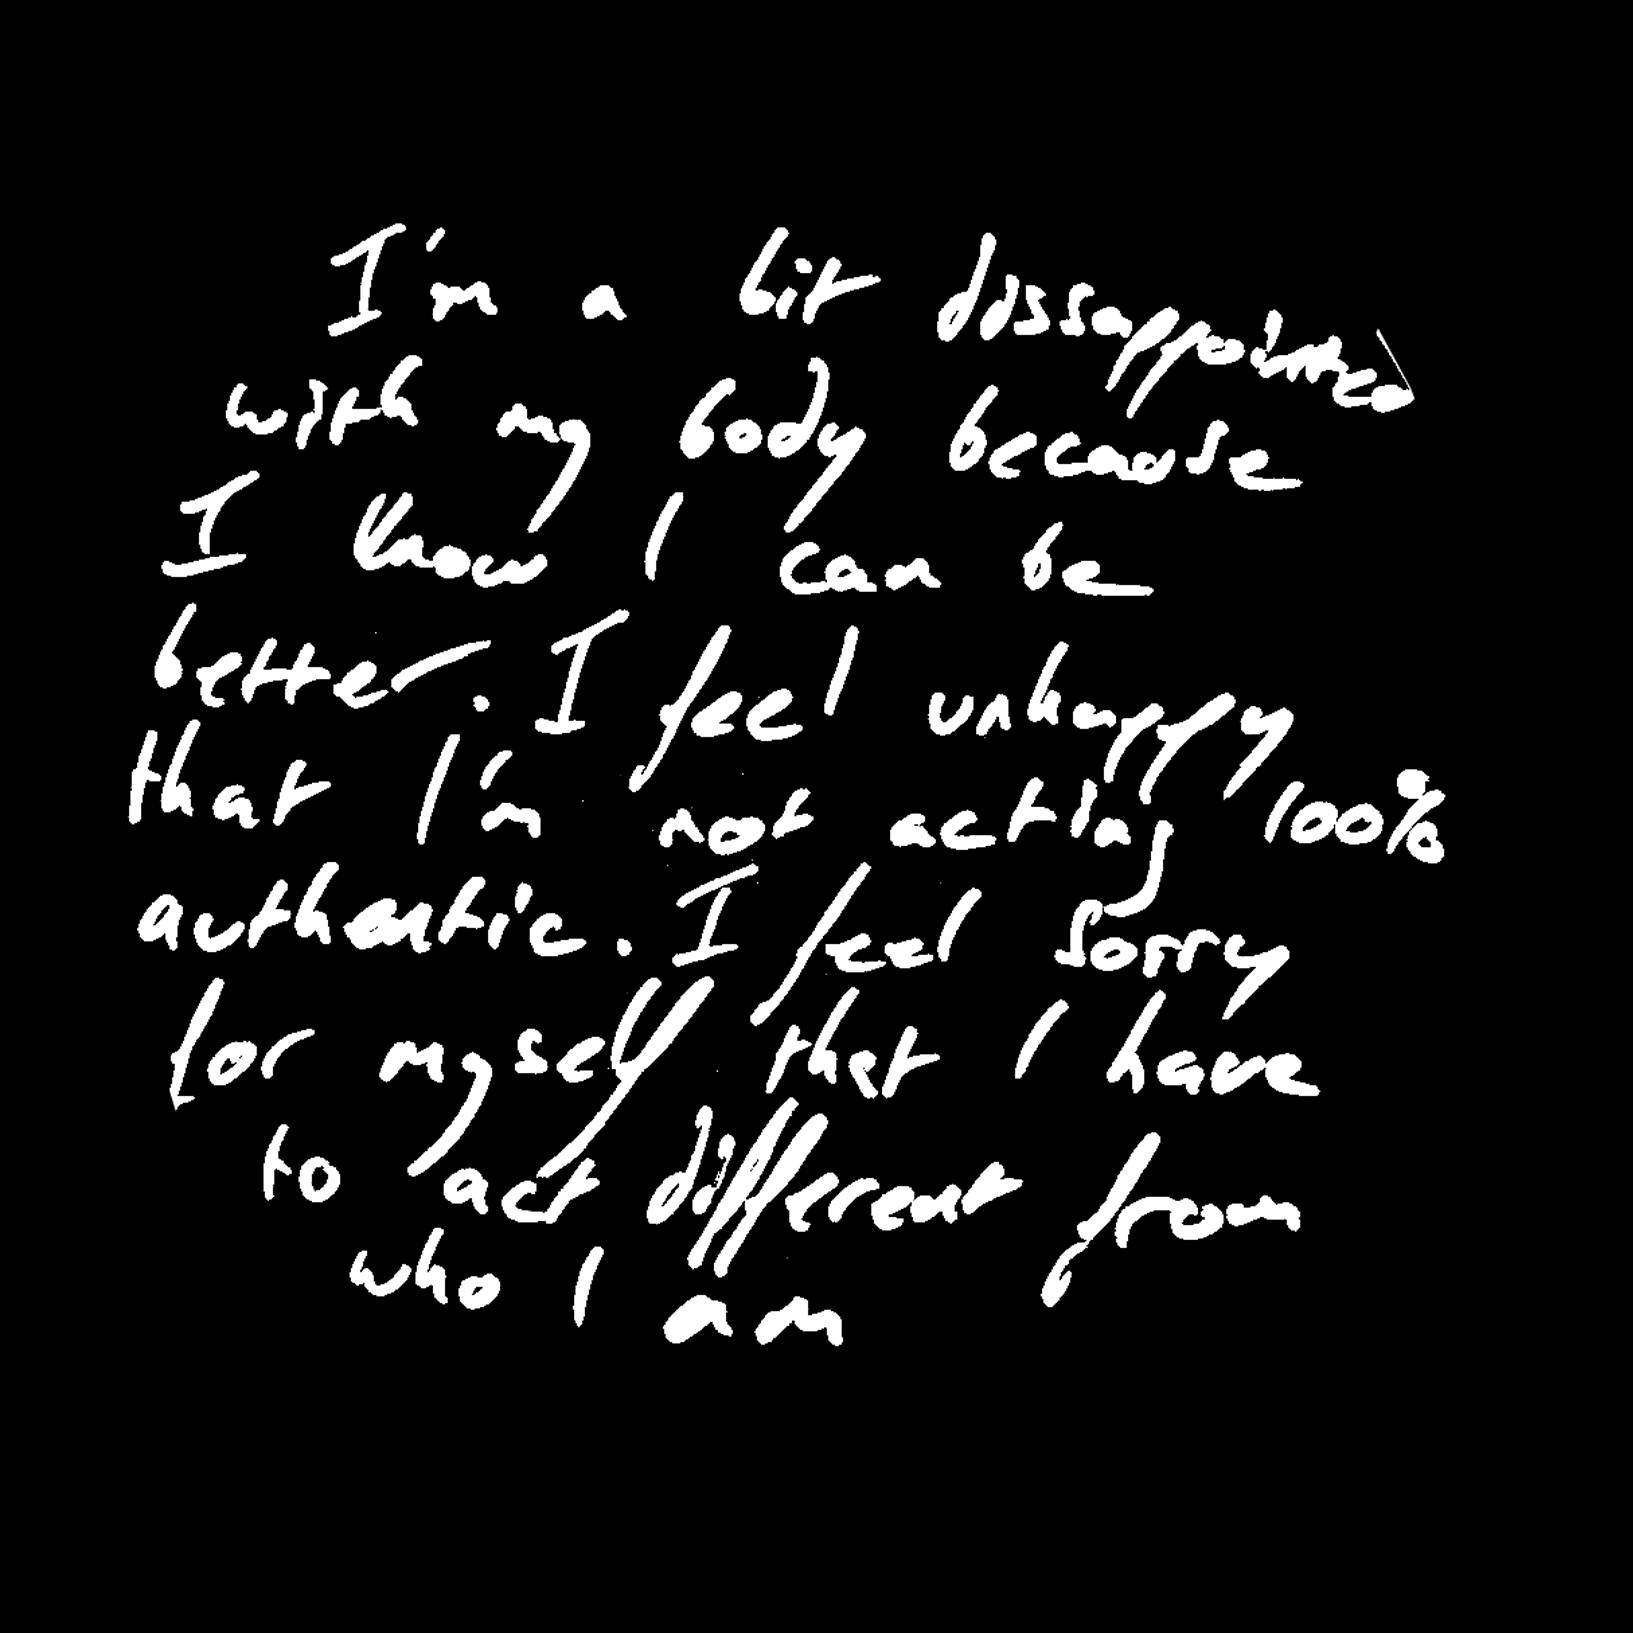 I'm a bit dissappointed
with my body because
I know I can be
better. I feel unhappy
that I'm not acting 100%
authentic. I feel sorry
for myself that I have
to act different from
who I am